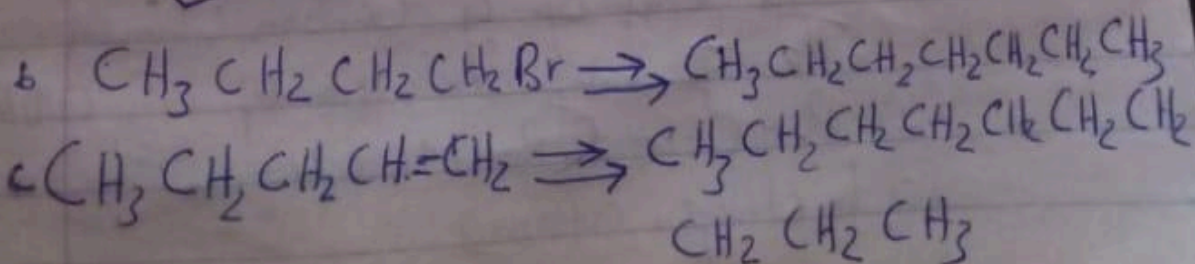 b CH3 CH2 CH2 CH2 Br ⇒ CH3 CH2 CH2 CH2 CH2 CH2 CH3
c CH3 CH2 CH2 CH=CH2 ⇒ CH3 CH2 CH2 CH2 CH2 CH2 CH2
CH2 CH2 CH3